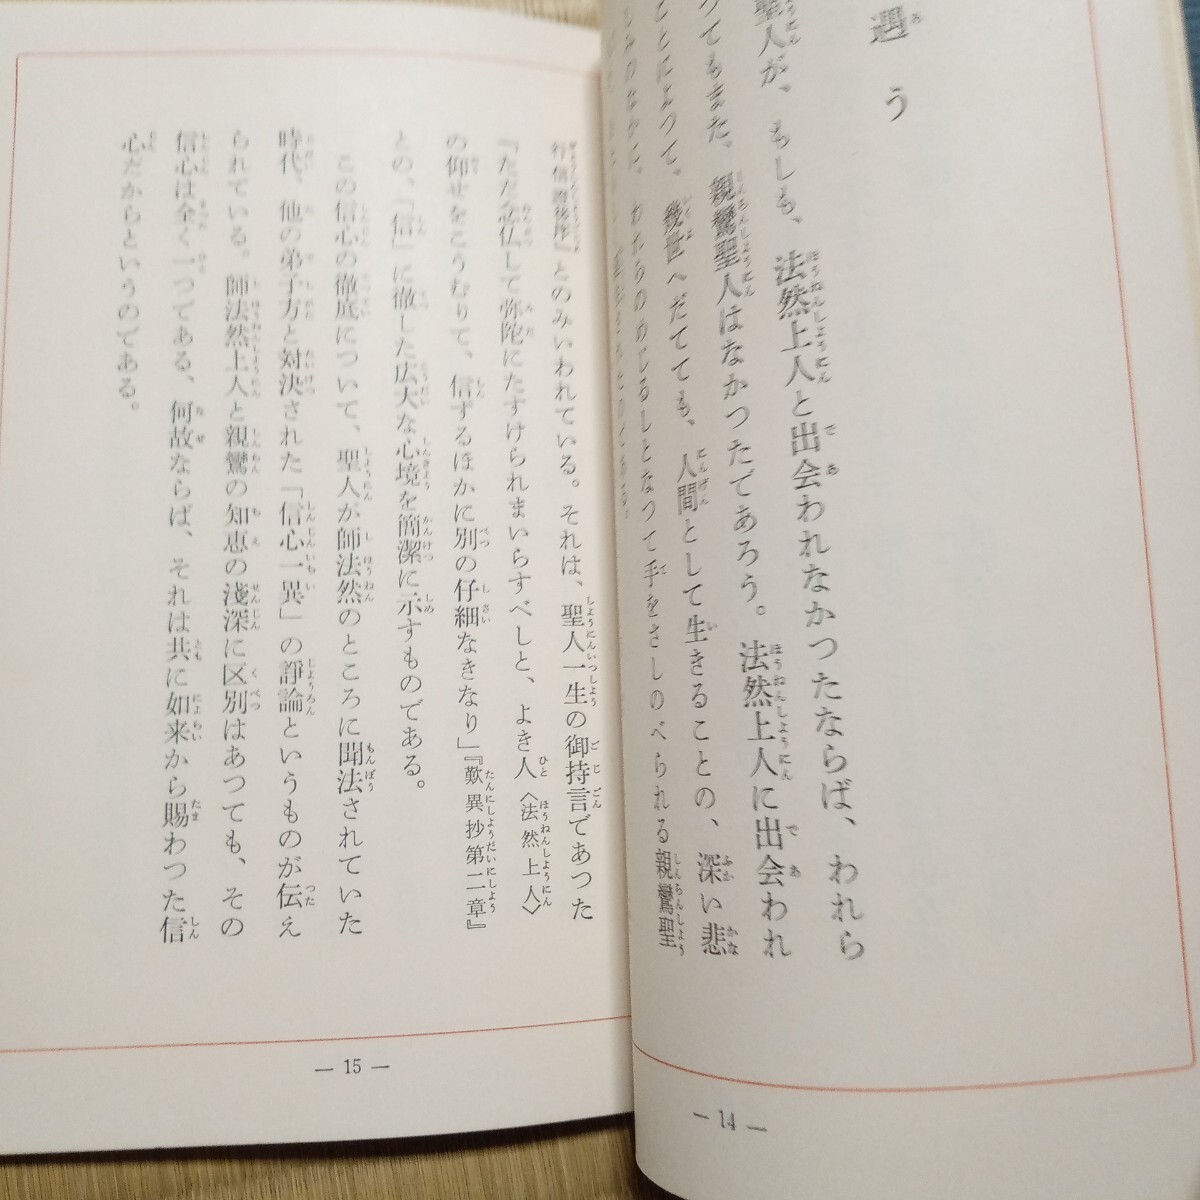 遇う
聖人が、もしも、法然上人と出会われなかつたならば、われら
つてもまた、親鸞聖人はなかつたであろう。法然上人に出会われ
ことによつて、幾世へだてても、人間として生きることの、深い悲
しみのなかに、われらのめじるしとなつて手をさしのべられる親鸞聖
— 14 —
行信證後序』とのみいわれている。それは、聖人一生の御持言であつた
『ただ念仏して弥陀にたすけられまいらすべしと、よき人〈法然上人〉
の仰せをこうむりて、信ずるほかに別の仔細なきなり」『歎異抄第二章』
との、「信」に徹した広大な心境を簡潔に示すものである。
この信心の徹底について、聖人が師法然のところに聞法されていた
時代、他の弟子方と対決された「信心一異」の諍論というものが伝え
られている。師法然上人と親鸞の知恵の淺深に区別はあつても、その
信心は全く一つである、何故ならば、それは共に如来から賜わつた信
心だからというのである。
— 15 —